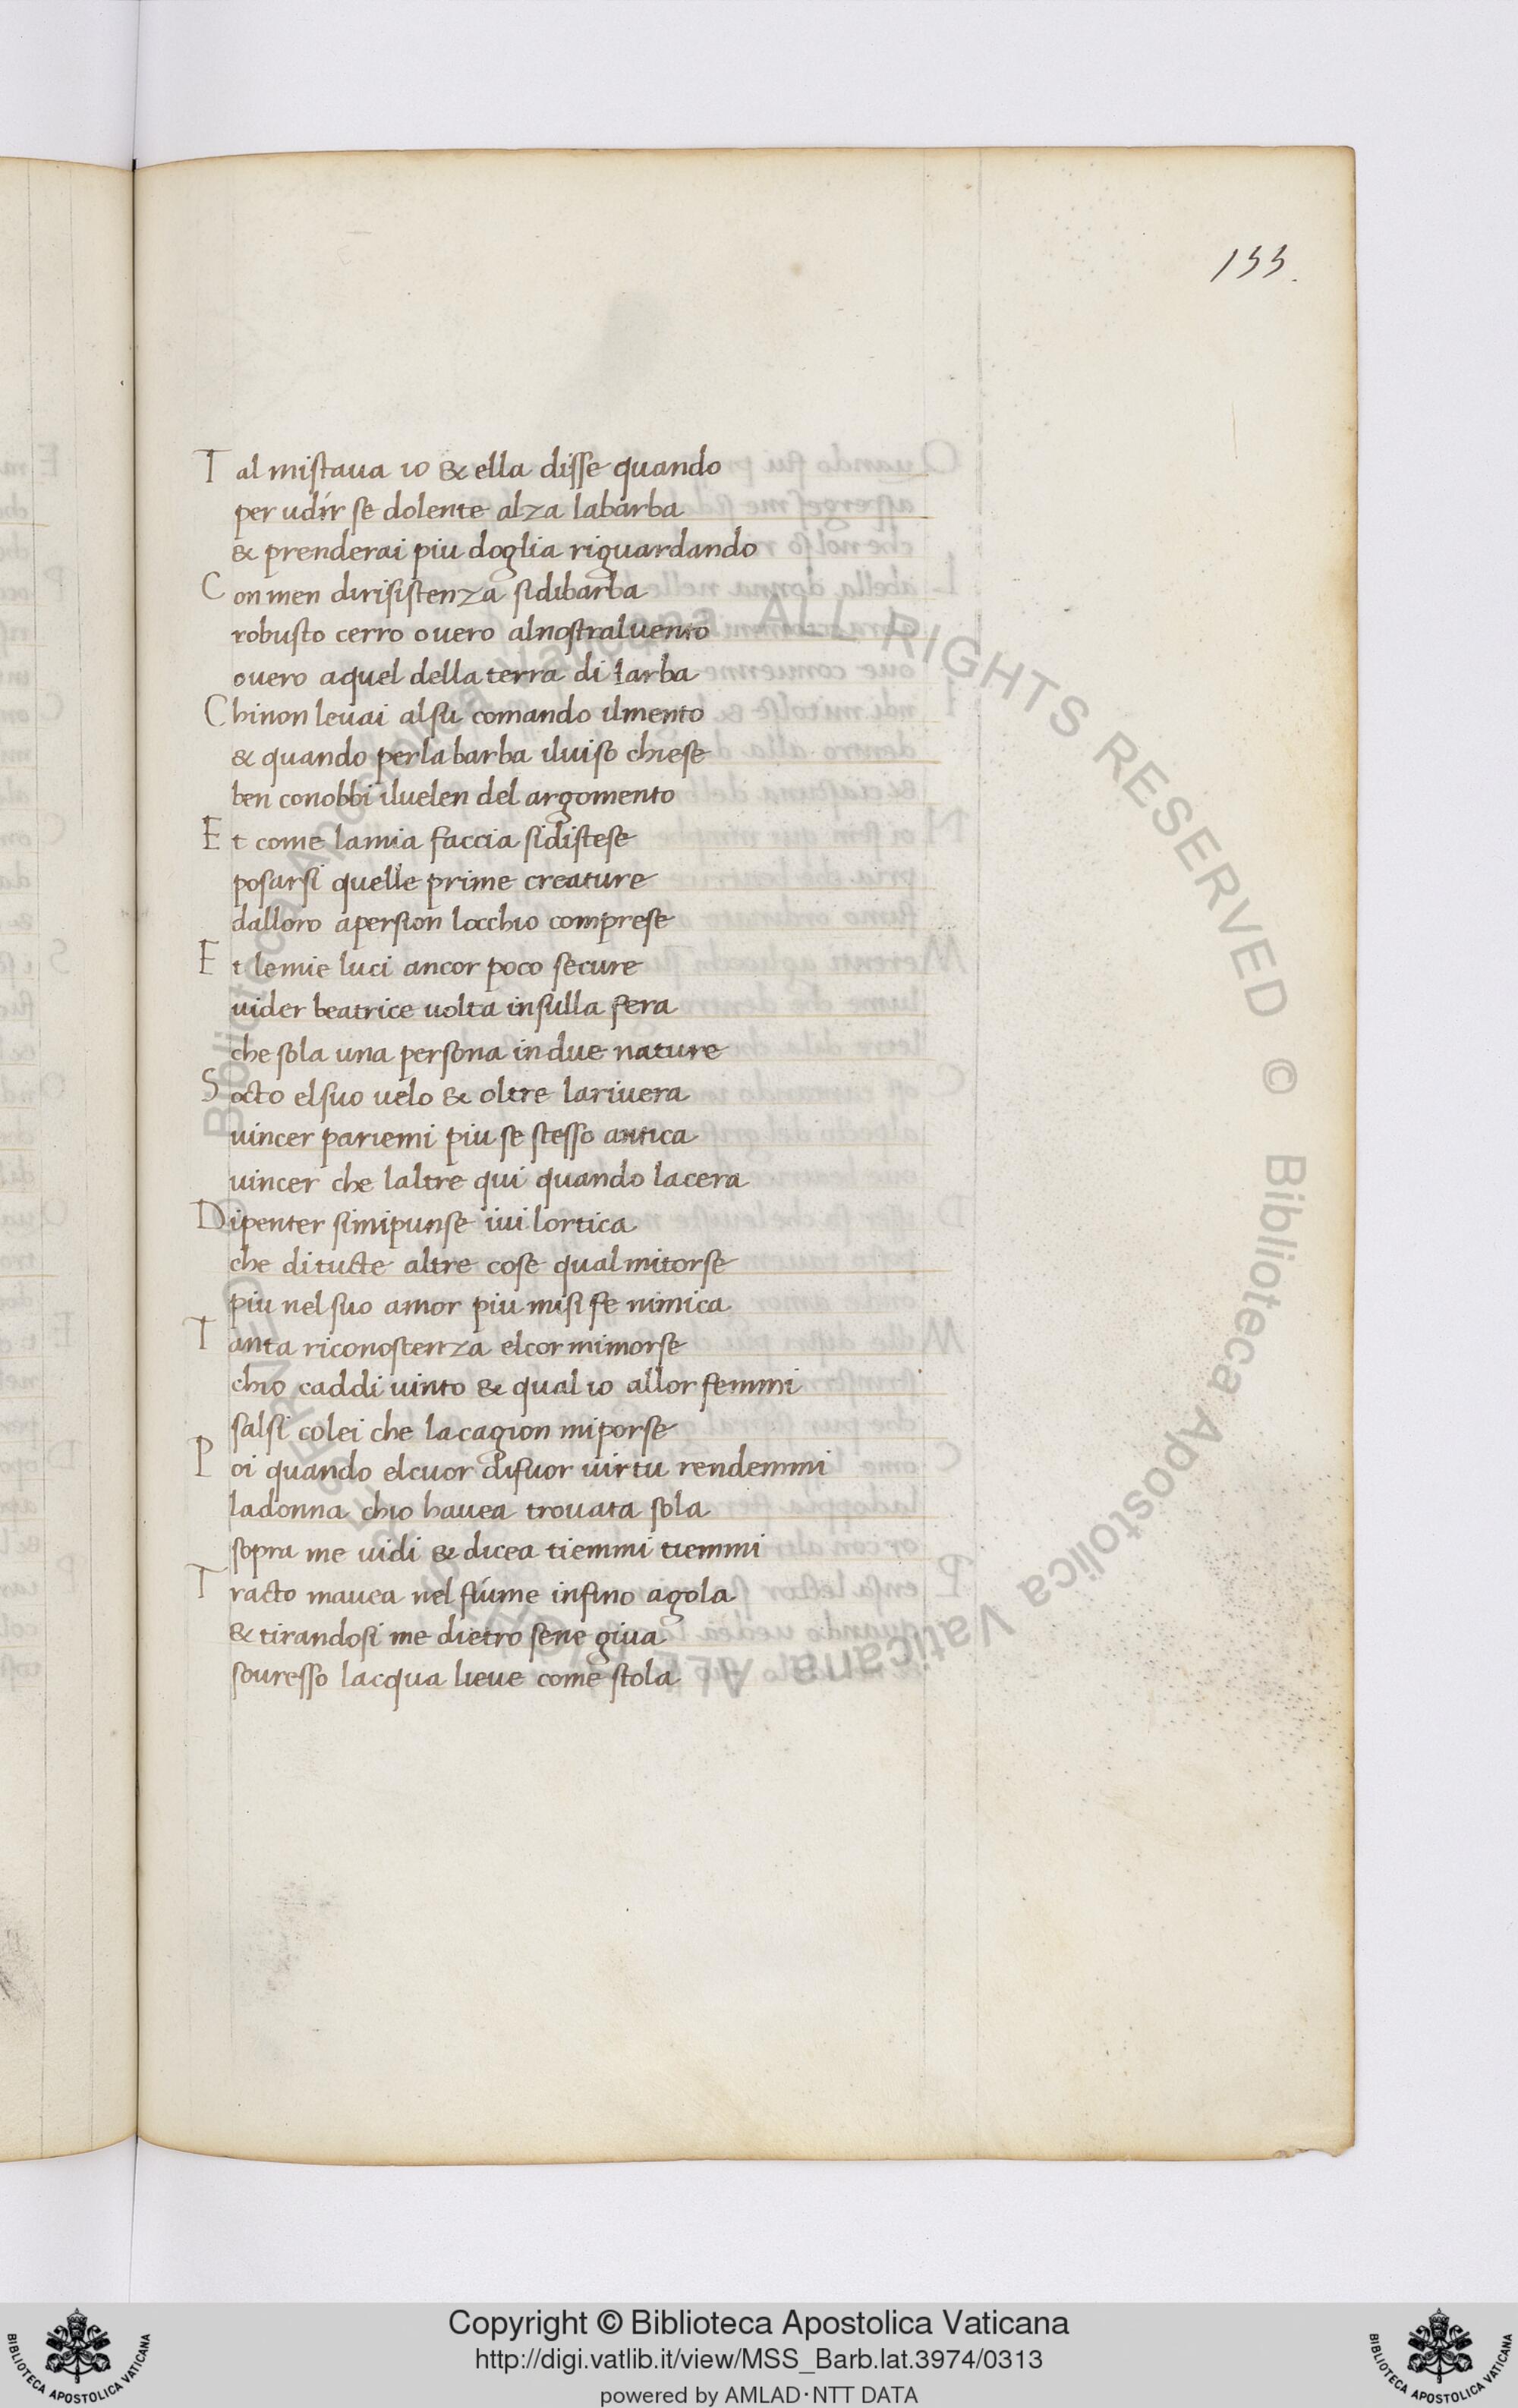 133.
Tal mistaua io & ella disse quando
per udir se dolente alza labarba
& prenderai piu doglia riguardando
Con men dirisistenza sidibarba
robusto cerro ouero alnostraluento
ouero aquel della terra di Iarba
Chinon leuai alsu comando ilmento
& quando perla barba iluiso chiese
ben conobbi iluelen del argomento
Et come lamia faccia sidistese
posarsi quelle prime creature
dalloro apersion locchio comprese
Et lemie luci ancor poco secure
uider beatrice uolta insulla fera
che sola una persona in due nature
Socto elsuo uelo & oltre lariuera
uincer pariemi piu se stesso antica
uincer che laltre qui quando lacera
Dipenter simipunse iui lortica
che ditucte altre cose qual mitorse
piu nel suo amor piu misi fe nimica
Tanta riconoscenza elcor mimorse
chio caddi uinto & qual io allor femmi
salsi colei che lacagion miporse
Poi quando elcuor difuor uirtu rendemmi
ladonna chio hauea trouata sola
sopra me uidi & dicea tiemmi tiemmi
Tracto mauea nel fiume infino agola
& tirandosi me dietro sene giua
souresso lacqua lieue come stola
Biblioteca Apostolica Vaticana ALL RIGHTS RESERVED © Biblioteca Apostolica Vaticana ALL RIGHTS RESERVED ©
Copyright © Biblioteca Apostolica Vaticana
http://digi.vatlib.it/view/MSS_Barb.lat.3974/0313
powered by AMLAD·NTT DATA
BIBLIOTECA APOSTOLICA VATICANA
BIBLIOTECA APOSTOLICA VATICANA